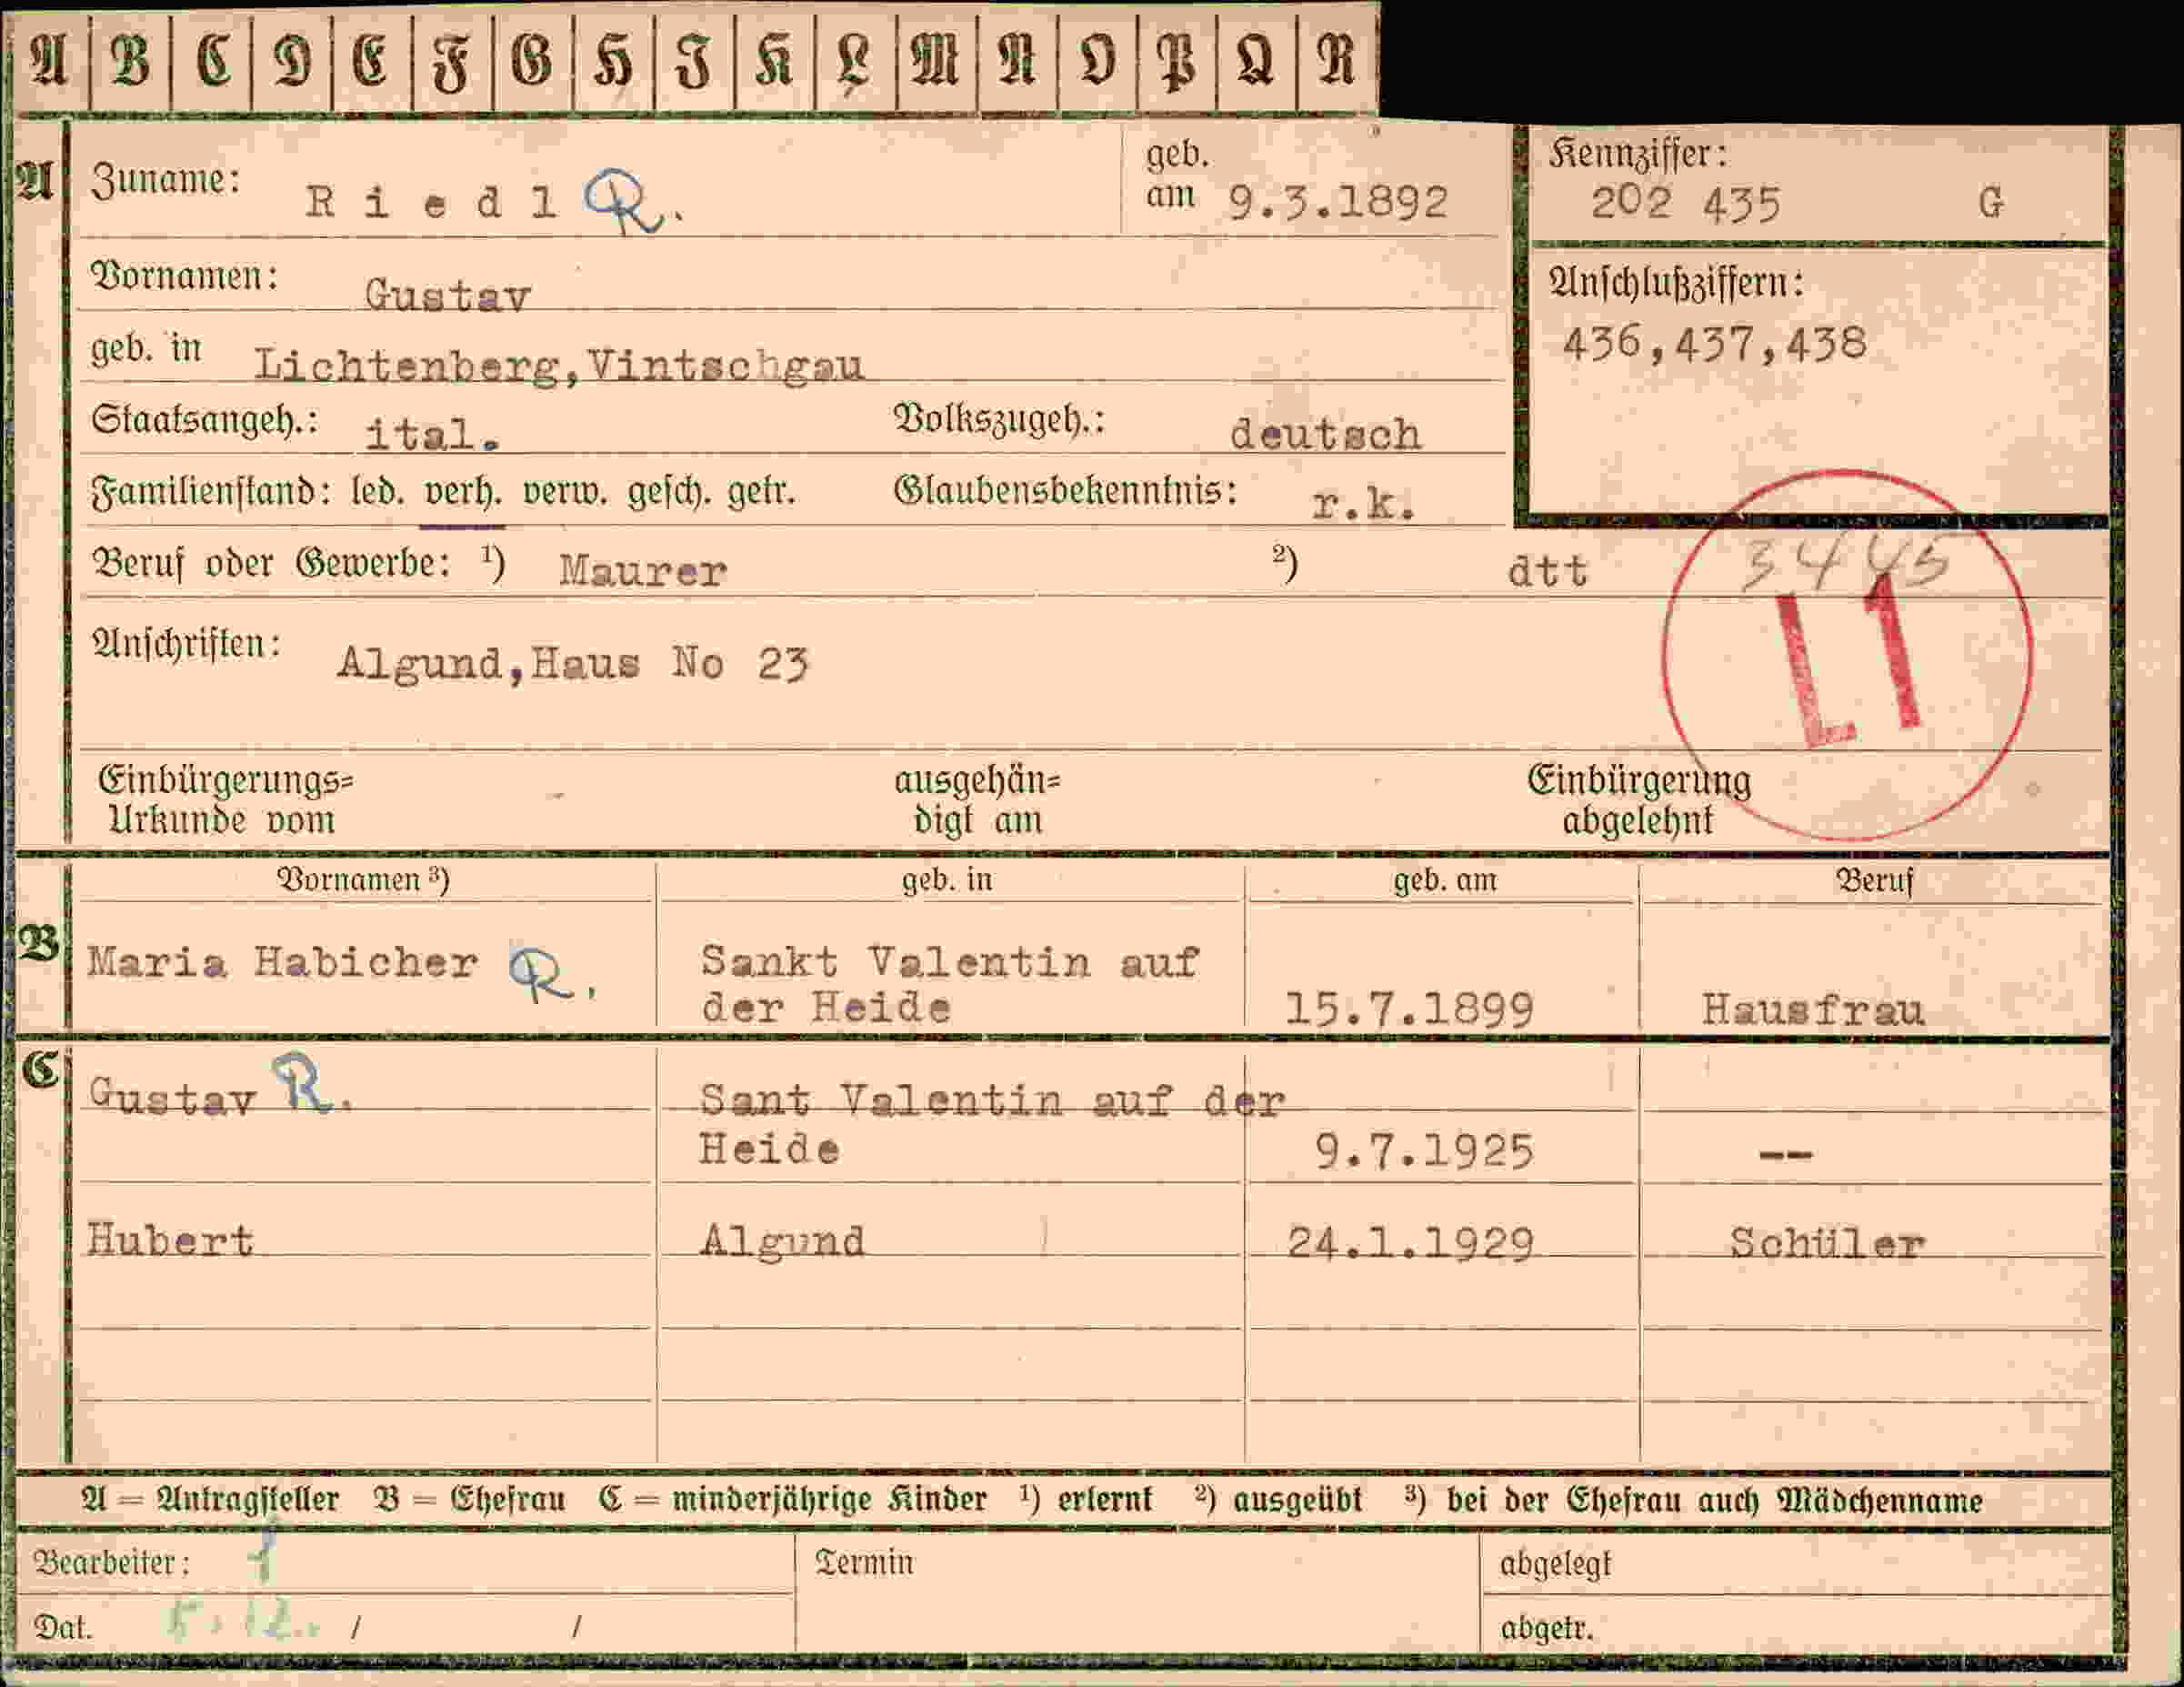 A B C D E F G H I K L M N O P Q R
A Zuname: Riedl R. geb. am 9.3.1892
Kennziffer: 202 435 G
Vornamen: Gustav
Anschlußziffern: 436,437,438
geb. in Lichtenberg,Vintschgau
Staatsangeh.: ital. Volkszugeh.: deutsch
Familienstand: led. verh. verw. gesch. getr. Glaubensbekenntnis: r.k.
Beruf oder Gewerbe: 1) Maurer 2) dtt 3445
L1
Anschriften: Algund,Haus No 23
Einbürgerungs= ausgehän= Einbürgerung
Urkunde vom digt am abgelehnt
Vornamen 3) geb. in geb. am Beruf
B Maria Habicher R. Sankt Valentin auf
der Heide 15.7.1899 Hausfrau
C Gustav R. Sant Valentin auf der
Heide 9.7.1925 --
Hubert Algund 24.1.1929 Schüler
A = Antragsteller B = Ehefrau C = minderjährige Kinder 1) erlernt 2) ausgeübt 3) bei der Ehefrau auch Mädchenname
Bearbeiter: Termin abgelegt
Dat. 5.12. / / abgetr.